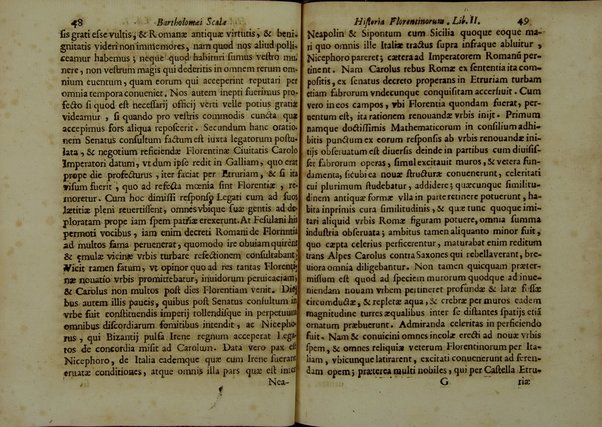 48 Bartholomei Scalæ
sis grati esse vultis, & Romanæ antiquæ virtutis, & beni-
gnitatis videri non immemores, nam quod nos aliud polli-
ceamur habemus; neque quod habituri sumus videmus
nunc, non vestrum magis qui dederitis in omnem rerum om-
nium euentum, quam eorum qui acceperint reputari per
omnia tempora conueniet. Nos autem inepti fuerimus pro-
fecto si quod est necessarij officij verti velle potius gratiæ
videamur, si quando pro vestris commodis cuncta quæ
accepimus fors aliqua reposcerit. Secundum hanc oratio-
nem Senatus consultum factum est iuxta legatorum postu-
lata, & negotium reficiendæ Florentinæ Ciuitatis Carolo
Imperatori datum, vt dum ipse redit in Galliam, quo erat
prope die profecturus, iter faciat per Etruriam, & si ita
visum fuerit, quo ad refecta mœnia sint Florentiæ, re-
sideat. Cum hoc dimissi responso Legati cum ad suos
lætitiæ pleni reuertissent, omnes vbique suæ gentis ad de-
ploratam prope iam spem patriæ erexerunt. At Fesulani his
permoti vocibus, iam enim decreti Romani de Florentia
ad multos fama peruenerat, quomodo ire obuiam quirent
& emulæ vicinæ vrbis turbare refectionem consultabant;
Vicit tamen fatum, vt opinor ad res tantas Florenti
næ nouatio vrbis promittebatur, inuidorum peruicaciam,
& Carolus non multos post dies Florentiam venit. Die-
bus autem illis paucis, quibus post Senatus consultum in
vrbe fuit constituendis imperij tollendisque in perpetuum
omnibus discordiarum fomitibus intendit, ac Nicepho-
rus, qui Bizantij pulsa Irene regnum acceperat Lega-
tos de concordia misit ad Carolum. Data vero pax est
Nicephoro, de Italia eademque quæ cum Irene fuerant
seruatæ conditiones, atque omnis illa pars quæ est inter
Nea-
Historia Florentinorum. Lib. II. 49
Neapolin & Sipontum cum Sicilia quoque eoque ma-
ri quo omnis ille Italiæ tractus supra infraque abluitur,
Nicephoro pareret; cætera ad Imperatorem Romanū per-
tinent. Nam Carolus rebus Romæ ex sententia ita com-
positis, ex senatus decreto properans in Etruriam turbam
etiam fabrorum vndecunque conquisitam accersiuit. Cum
vero in eos campos, vbi Florentia quondam fuerat, per-
uentum est, ita rationem renouandæ vrbis inijt. Primum
namque doctissimis Mathematicorum in consilium adhi-
bitis punctum ex eorum responsis ab vrbis renouandæ ini-
tijs obseruatum est diuersis deinde in partibus cum diuisis-
set fabrorum operas, simul excitauit muros, & vetera fun-
damenta, sicubi ea nouæ structuræ conuenerunt, celeritati
cui plurimum studebatur, addicere; quæcunque similitu-
dinem antiquæ formæ villa in parte retinere poterunt, ha-
bita inprimis cura similitudinis, & quæ nunc quoque imi-
tari aliquid vrbis Romæ figuram potuere, omnia summa
industria obseruata; ambitus tamen aliquanto minor fuit,
quo cæpta celerius perficerentur, maturabat enim reditum
trans Alpes Carolus contra Saxones qui rebellauerant, bre-
uiora omnia diligebantur. Non tamen quicquam præter-
missum est quod ad speciem murorum quodque ad inue-
niendam nouam vrbem pertineret profundæ & latæ fossæ
circumductæ, & repletæ aqua, & crebræ per muros eadem
magnitudine turres æquantibus inter se distantes spatijs etiā
ornatum præbuerunt. Admiranda celeritas in perficiendo
fuit. Nam & conuicini omnes incolæ erecti ad nouæ vrbis
spem, & omnes reliquiæ veterum Florentinorum per Ita-
liam, vbicunque latirarent, excitati conuenerunt ad feren-
dam opem; præterea multi nobiles, qui per Castella Etru-
G riæ